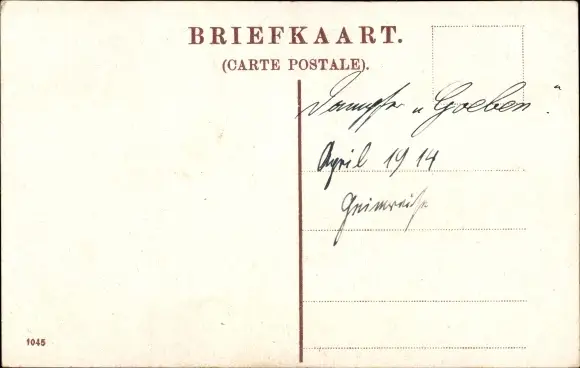 BRIEFKAART.
(CARTE POSTALE).
Dampfer „Goeben“.
April 1914
Heimreise
1045